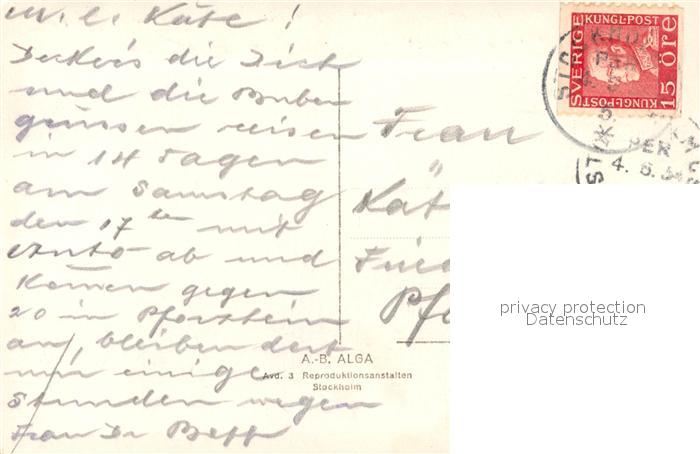 M. l. Käte!
Decker's die Dich
und die Buben
grüssen reisen
in 14 Tagen
am Samstag
den 17ten mit
Auto ab und
komen gegen
20 in Pforzheim
an, bleiben dort
nur einige
Stunden wegen
Frau Dr
Frau
Kät
Frie
Pf
SVERIGE
KUNGL-POST
15 ÖRE
KUNGL-POST
4. 6. 3
A.-B. ALGA
Avd. 3 Reproduktionsanstalten
Stockholm
privacy protection
Datenschutz